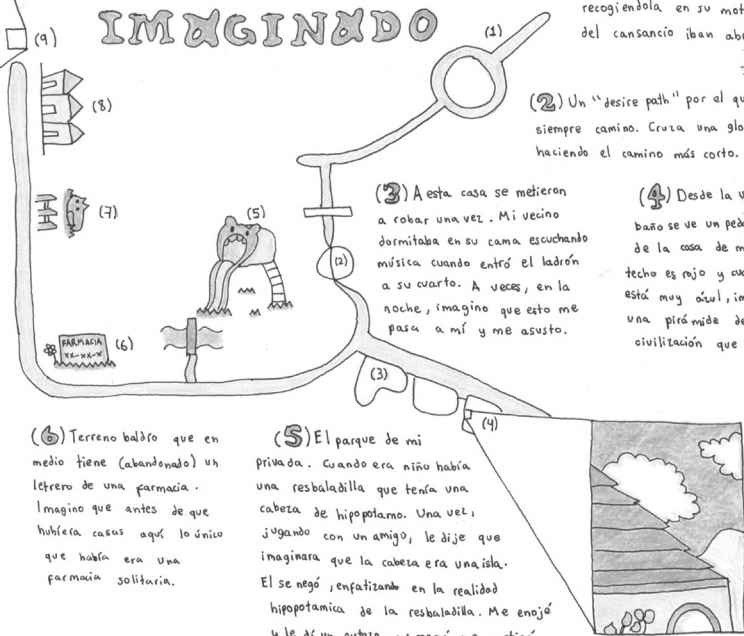 IMAGINADO
recogiendola en su
del cansancio iban
(1)
(2) Un "desire path" por el
siempre camino. Cruza una
haciendo el camino más corto.
(3) A esta casa se metieron
a robar una vez. Mi vecino
dormitaba en su cama escuchando
música cuando entró el ladrón
a su cuarto. A veces, en la
noche, imagino que esto me
pasa a mí y me asusto.
(4) Desde la
baño se ve un
de la casa de
techo es rojo y
está muy azul,
una pirámide
civilización que
(9)
(8)
(7)
(5)
(2)
FARMACIA
xx-xx-x
(6)
(3)
(4)
(6) Terreno baldío que en
medio tiene (abandonado) un
letrero de una farmacia.
Imagino que antes de que
hubiera casas aquí lo único
que había era una
farmacia solitaria.
(5) El parque de mi
privada. Cuando era niño había
una resbaladilla que tenía una
cabeza de hipopotamo. Una vez,
jugando con un amigo, le dije que
imaginara que la cabeza era una isla.
El se negó, enfatizando en la realidad
hipopotamica de la resbaladilla. Me enojé